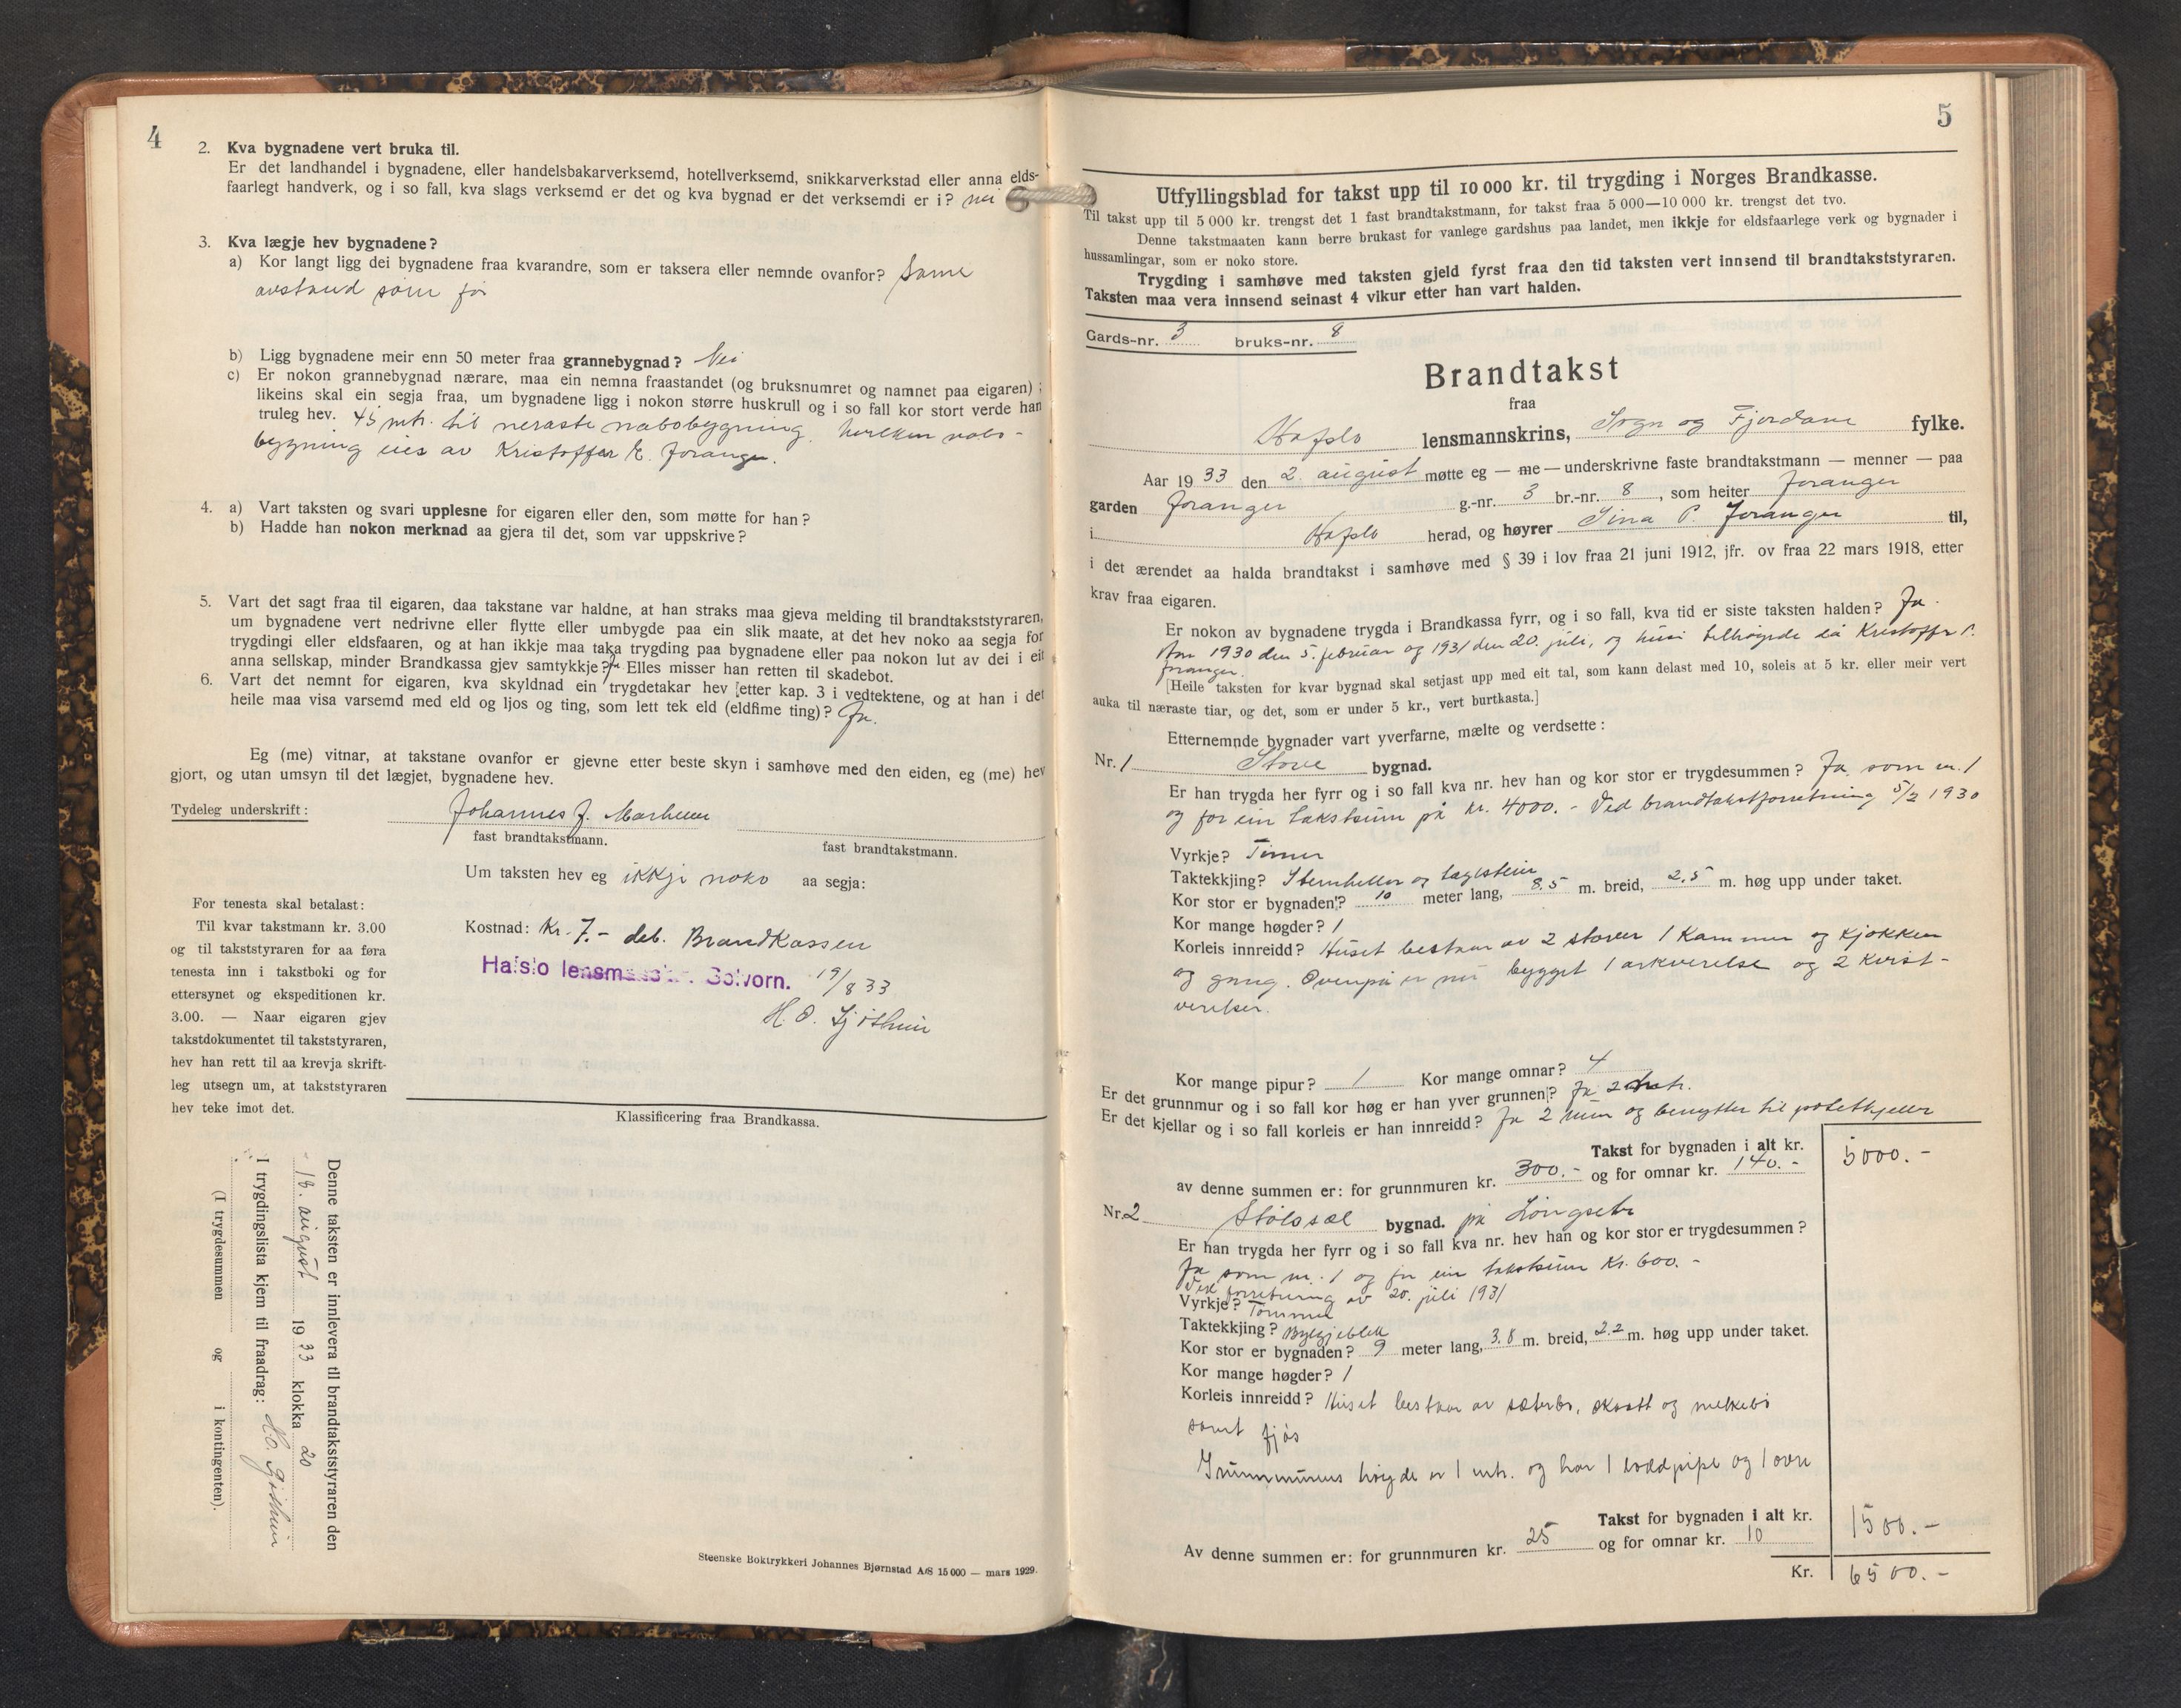 4
2. Kva bygnadene vert bruka til.
Er det landhandel i bygnadene, eller handelsbakarverksemd, hotellverksemd, snikkarverkstad eller anna elds-
faarlegt handverk, og i so fall, kva slags verksemd er det og kva bygnad er det verksemdi er i? nei
3. Kva lægje hev bygnadene?
a) Kor langt ligg dei bygnadene fraa kvarandre, som er taksera eller nemnde ovanfor? Same
avstand som før
b) Ligg bygnadene meir enn 50 meter fraa grannebygnad? Nei
c) Er nokon grannebygnad nærare, maa ein nemna fraastandet (og bruksnumret og namnet paa eigaren);
likeins skal ein segja fraa, um bygnadene ligg i nokon større huskrull og i so fall kor stort verde han
truleg hev. 45 mtr. til neraste nabobygning, hvilken nabo-
bygning eies av Kristoffer E. Joranger.
4. a) Vart taksten og svari upplesne for eigaren eller den, som møtte for han?
b) Hadde han nokon merknad aa gjera til det, som var uppskrive?
5. Vart det sagt fraa til eigaren, daa takstane var haldne, at han straks maa gjeva melding til brandtakststyraren,
um bygnadene vert nedrivne eller flytte eller umbygde paa ein slik maate, at det hev noko aa segja for
trygdingi eller eldsfaaren, og at han ikkje maa taka trygding paa bygnadene eller paa nokon lut av dei i eit
anna sellskap, minder Brandkassa gjev samtykkje? Ja. Elles misser han retten til skadebot.
6. Vart det nemnt for eigaren, kva skyldnad ein trygdetakar hev [etter kap. 3 i vedtektene, og at han i det
heile maa visa varsemd med eld og ljos og ting, som lett tek eld (eldfime ting)? Ja.
Eg (me) vitnar, at takstane ovanfor er gjevne etter beste skyn i samhøve med den eiden, eg (me) hev
gjort, og utan umsyn til det lægjet, bygnadene hev.
Tydeleg underskrift: Johannes J. Marheim
fast brandtakstmann. fast brandtakstmann.
Um taksten hev eg ikkje noko aa segja:
Kostnad: Kr. 7.- deb. Brandkassen
Hafslo lensmann Solvorn. 19/8 33
H. O.
For tenesta skal betalast:
Til kvar takstmann kr. 3.00
og til takststyraren for aa føra
tenesta inn i takstboki og for
ettersynet og ekspeditionen kr.
3.00. — Naar eigaren gjev
takstdokumentet til takststyraren,
hev han rett til aa krevja skrift-
leg utsegn um, at takststyraren
hev teke imot det.
Klassificering fraa Brandkassa.
Denne taksten er innlevera til brandtakststyraren den
18. august 1933 klokka 20
I trygdingslista kjem til fraadrag:
(I trygdesummen og i kontingenten).
Steenske Boktrykkeri Johannes Bjørnstad A/S 15 000 — mars 1929.
5
Utfyllingsblad for takst upp til 10 000 kr. til trygding i Norges Brandkasse.
Til takst upp til 5 000 kr. trengst det 1 fast brandtakstmann, for takst fraa 5 000—10 000 kr. trengst det tvo.
Denne takstmaaten kann berre brukast for vanlege gardshus paa landet, men ikkje for eldsfaarlege verk og bygnader i
hussamlingar, som er noko store.
Trygding i samhøve med taksten gjeld fyrst fraa den tid taksten vert innsend til brandtakststyraren.
Taksten maa vera innsend seinast 4 vikur etter han vart halden.
Gards-nr. 3 bruks-nr. 8
Brandtakst
fraa
Hafslo lensmannskrins, Sogn og Fjordane fylke.
Aar 1933 den 2. august møtte eg — me — underskrivne faste brandtakstmann — menner — paa
garden Joranger g.-nr. 3 br.-nr. 8, som heiter Joranger
i Hafslo herad, og høyrer Sina P. Joranger til,
i det ærendet aa halda brandtakst i samhøve med § 39 i lov fraa 21 juni 1912, jfr. ov fraa 22 mars 1918, etter
krav fraa eigaren.
Er nokon av bygnadene trygda i Brandkassa fyrr, og i so fall, kva tid er siste taksten halden? Ja.
Aar 1930 den 5. februar og 1931 den 20. juli, og husi tilhøyrde då Kristoffer P.
Joranger.
[Heile taksten for kvar bygnad skal setjast upp med eit tal, som kann delast med 10, soleis at 5 kr. eller meir vert
auka til næraste tiar, og det, som er under 5 kr., vert burtkasta.]
Etternemnde bygnader vart yverfarne, mælte og verdsette:
Nr. 1 Stove bygnad.
Er han trygda her fyrr og i so fall kva nr. hev han og kor stor er trygdesummen? Ja, som nr. 1
og for ein takstsum på kr. 4000.- Ved brandtakstforretning 5/2 1930
Vyrkje? Timer
Taktekkjing? Stenheller og taglstein
Kor stor er bygnaden? 10 meter lang, 8.5 m. breid, 2.5 m. høg upp under taket.
Kor mange høgder? 1
Korleis innreidd? Huset bestaar av 2 stover 1 Kammer og kjøkken
og gang. Ovenpå er nu bygget 1 arkverelse og 2 kvist-
verelser.
Kor mange pipur? 1 Kor mange omnar? 4
Er det grunnmur og i so fall kor høg er han yver grunnen? Ja 2 mtr.
Er det kjellar og i so fall korleis er han innreidd? Ja 2 rum og benytter til potetkjeller
Takst for bygnaden i alt kr. 5000.-
av denne summen er: for grunnmuren kr. 300.- og for omnar kr. 140.-
Nr. 2 Stølssæl bygnad. på
Er han trygda her fyrr og i so fall kva nr. hev han og kor stor er trygdesummen?
Ja som nr. 1 og for ein takstsum Kr. 600.-
Ved forretning av 20. juli 1931
Vyrkje? Tømmer
Taktekkjing? Bylgjeblikk
Kor stor er bygnaden? 9 meter lang, 3.8 m. breid, 2.2 m. høg upp under taket.
Kor mange høgder? 1
Korleis innreidd? Huset bestaar av sæterbu, skaatt og melkebu
samt fjøs
Grunnmurens høgde er 1 mtr. og har 1 pipe og 1 ovn
Takst for bygnaden i alt kr. 1500.-
Av denne summen er: for grunnmuren kr. 25 og for omnar kr. 10
Kr. 6500.-